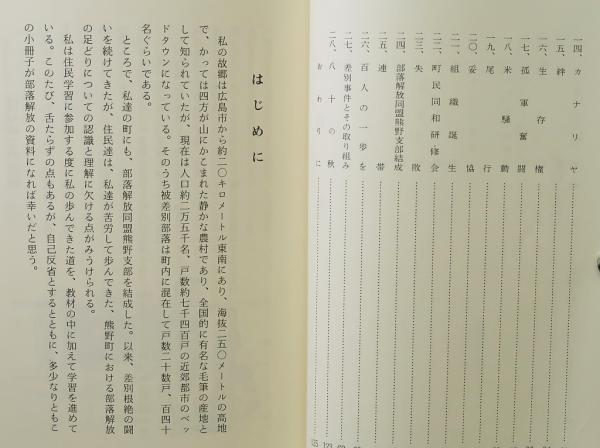 一四、カナリヤ
一五、絆
一六、生存権
一七、孤軍奮闘
一八、米騒動
一九、尾行
二〇、妥協
二一、組織誕生
二二、町民同和研修会
二三、失敗
二四、部落解放同盟熊野支部結成
二五、連帯
二六、百人の一歩を
二七、差別事件とその取り組み
二八、八十の秋
おわりに
はじめに
私の故郷は広島市から約二〇キロメートル東南にあり、海抜二五〇メートルの高地
で、かっては四方が山にかこまれた静かな農村であり、全国的に有名な毛筆の産地と
して知られていたが、現在は人口約二万五千名、戸数約七千四百戸の近郊都市のベッ
ドタウンになっている。そのうち被差別部落は町内に混在して戸数二十数戸、百四十
名ぐらいである。
ところで、私達の町にも、部落解放同盟熊野支部を結成した。以来、差別根絶の闘
いを続けてきたが、住民達は、私達が苦労して歩んできた、熊野町における部落解放
の足どりについての認識と理解に欠ける点がみうけられる。
私は住民学習に参加する度に私の歩んできた道を、教材の中に加えて学習を進めて
いる。このたび、舌たらずの点もあるが、自己反省とするとともに、多少なりともこ
の小冊子が部落解放の資料になれば幸いだと思う。